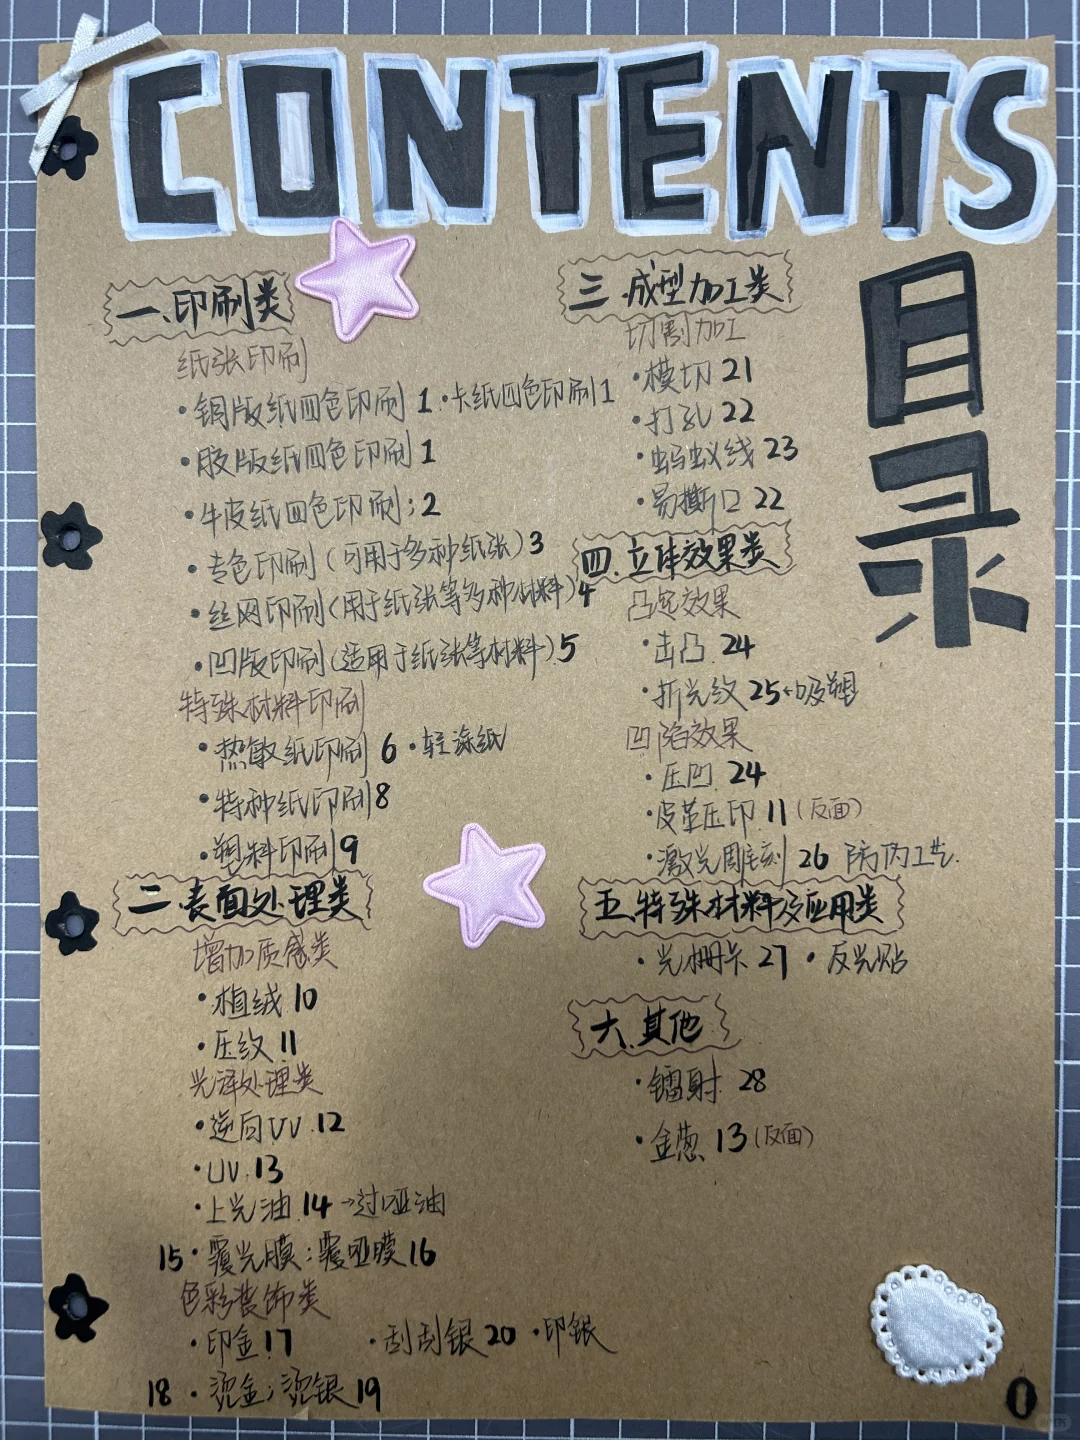 CONTENTS
目录
一.印刷类
纸张印刷
·铜版纸四色印刷 1 ·卡纸四色印刷 1
·胶版纸四色印刷 1
·牛皮纸四色印刷; 2
·专色印刷(可用于多种纸张) 3
·丝网印刷(用于纸张等多种材料) 4
·凹版印刷(适用于纸张等材料). 5
特殊材料印刷
·热敏纸印刷 6 ·轻涂纸
·特种纸印刷 8
·塑料印刷 9
二.表面处理类
增加质感类
·植绒 10
·压纹 11
光泽处理类
·逆向UV. 12
·UV. 13
·上光油. 14 →过哑油
15·覆光膜;覆哑膜 16
色彩装饰类
·印金 17 ·刮刮银 20 ·印银
18·烫金;烫银 19
三.成型加工类
切割加工
·模切 21
·打孔 22
·蚂蚁线 23
·易撕口 22
四.立体效果类
凸起效果
·击凸. 24
·折光纹 25 ←吸塑
凹陷效果
·压凹. 24
·皮革压印. 11(反面)
·激光雕刻 26 防伪工艺.
五.特殊材料及应用类
·光栅卡 27 ·反光贴
六.其他
·镭射. 28
·金葱. 13(反面)
0